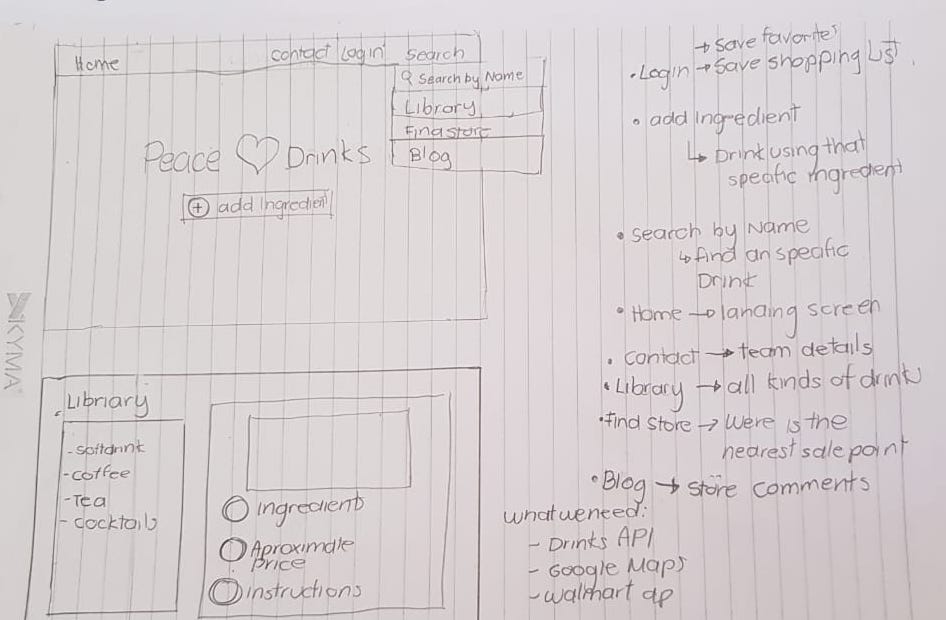 Home contact Login search
Search by Name
Library
Find store
Blog
Peace ♡ Drinks
+ add Ingredient
KYMA
Libriary
- softdrink
- coffee
- Tea
- cocktails
Ingredients
Aproximate
price
instructions
→ Save favorites
• Login → Save shopping List.
• add Ingredient
↳ Drink using that
specific ingredient
• search by Name
↳ find an specific
Drink
• Home → landing screen
• Contact → team details
• Library → all kinds of drink
• find store → Were is the
nearest sale point
• Blog → store comments
What we need:
- Drinks API
- Google Maps
- Walmart ap